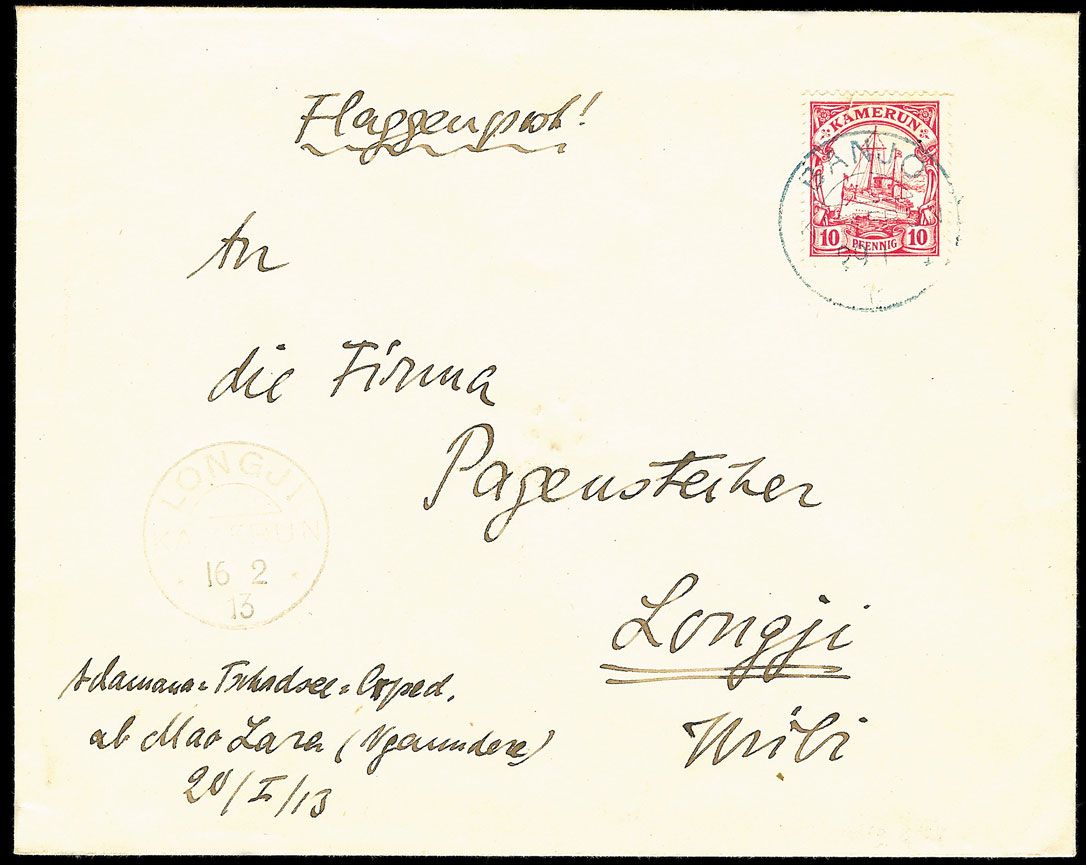 Flaggenpost!
KAMERUN
10 PFENNIG 10
BANJO
An
die Firma
Pagenstecher
LONGJI
KAMERUN
16 2
13
Longji
Adamaua=Tschadsee=Exped.
ab Mao Lara (Ngaundere)
20/I/13